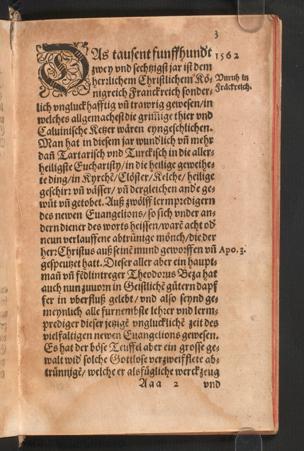 3
DAs tausent funffhundt
zwey vnd sechtzigst jar ist dem
herrlichem Christlichem Kö⸗
nigreich Franckreich sonder⸗
lich vngluckhafftig vñ trawrig gewesen/in
welches allgemachest die grim̃ige thier vnd
Caluinische Ketzer wären eyngeschlichen.
Man hat in diesem jar wundlich vñ mehr
dañ Tartarisch vnd Turckisch in die aller⸗
heiligste Eucharisty/ in die heilige geweihe⸗
te ding/in Kyrchē/Clöster/Kelche/ heilige
geschirr vñ vässer/ vñ dergleichen andˀe ge⸗
wüt vñ getobet. Auß zwölff lermpredigern
des newen Euangelions/ so sich vnder an⸗
dern diener des worts heissen/ warē acht od̕
neun verlauffene abtrünige mönch/die der
herꝛ Christus auß seinē mund geworffen vñ
gespeutzet hatt. Dieser aller aber ein haupt⸗
man vñ redlinfreger Theodorus Beza hat
auch nun zuuorn in Geistlichē gütern dapf
fer in vberfluß gelebt/ vnd also seynd ge⸗
meynlich alle furnembste lehrer vnd lerm⸗
prediger dieser jetzigē vnglucklichē zeit des
vielfaltigen newen Euangelions gewesen.
Es hat der böse Teuffel aber ein grosse ge⸗
walt wid̕ solche Gottlose verzweifflete ab⸗
trünnigē/ welche er als fügliche werckzeug
Aaa 2 vnd
1562
Vnruh in
Frāckreich.
Apo. 3.